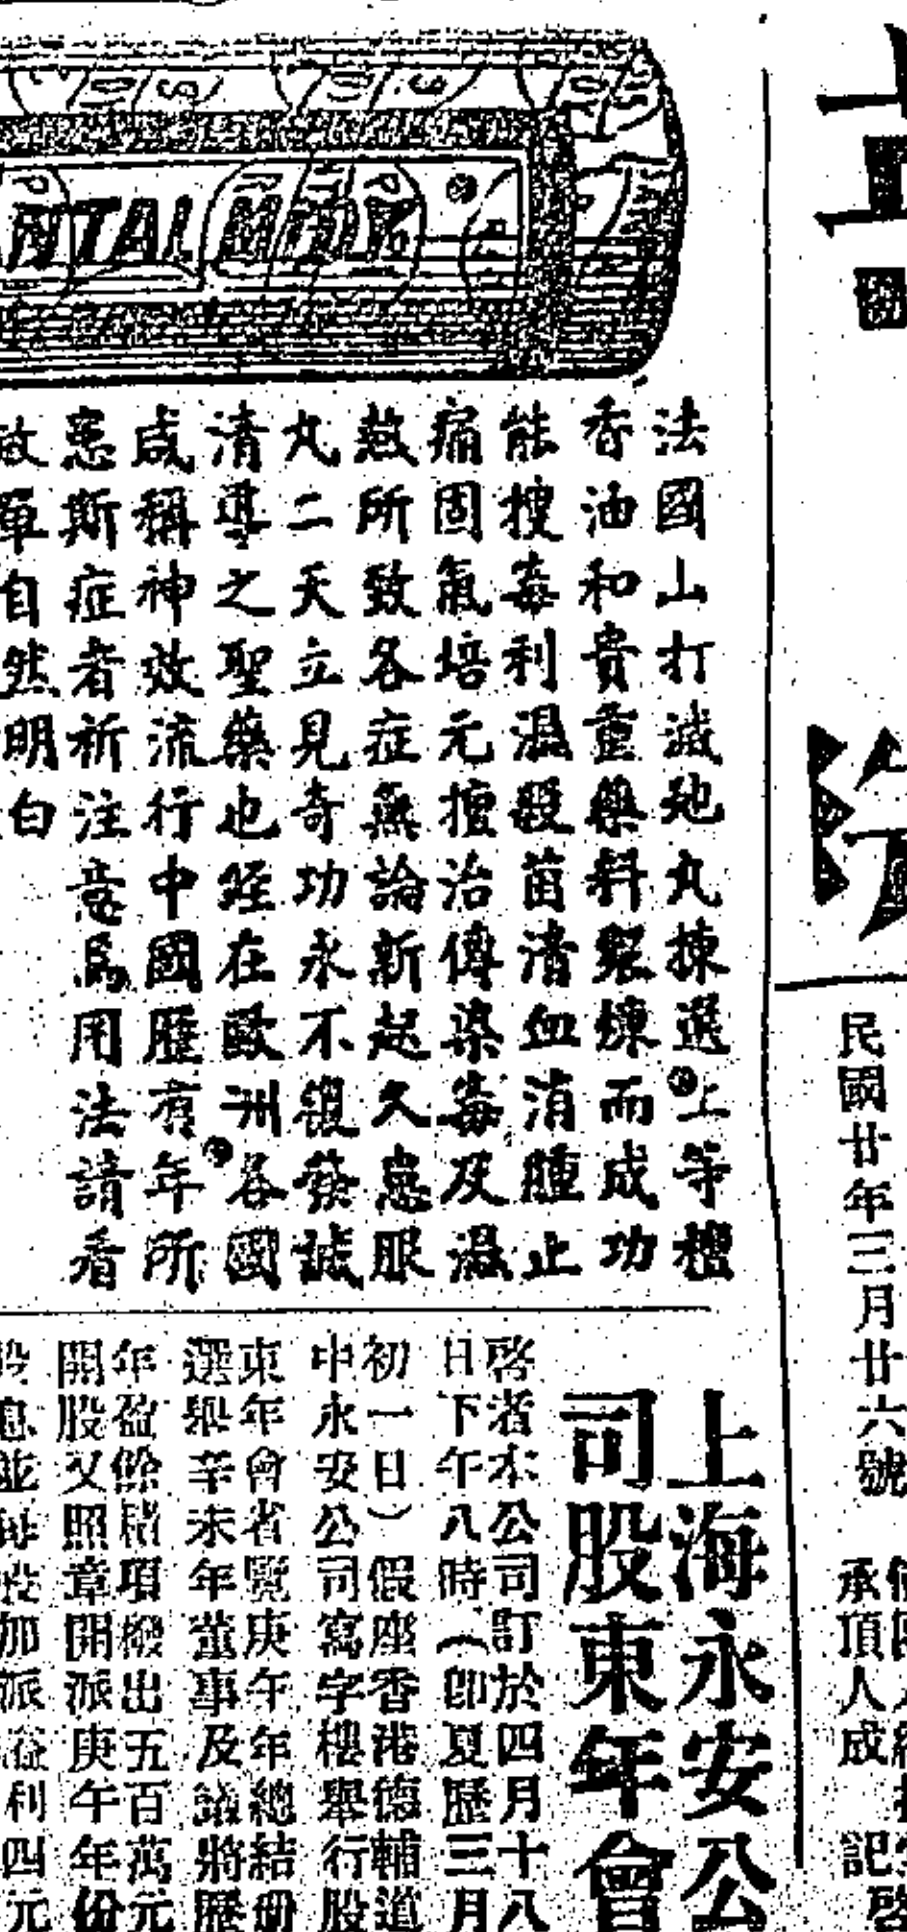 NTAL MIDY
法國山打滅地丸揀選上等檀
香油和貴重藥料製煉而成功
能搜毒利濕殺菌清血消腫止
痛固氣培元擅治傳染毒及濕
熱所致各症無論新起久患服
丸二天立見奇功永不復發誠
清導之聖藥也經在歐洲各國
咸稱神效流行中國歷有年所
患斯症者祈注意焉用法請看
單自然明白
上海永安公
司股東年會
啓者本公司訂於四月十八
日下午八時（即夏歷三月
初一日）假座香港德輔道
中永安公司寫字樓舉行股
東年會省覽庚午年總結册
選舉辛未年董事及議將歷
年盈餘積項撥出五百萬元
開股又照章開派庚午年份
股息並每股加派溢利四元
民國廿年三月廿六號
承頂人成記啓